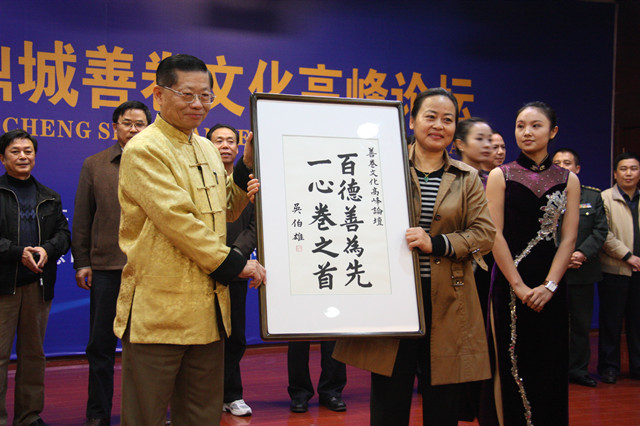 城善卷文化高峰论坛
CHENG
善卷文化高峰論壇
百德善為先
一心卷之首
吳伯雄